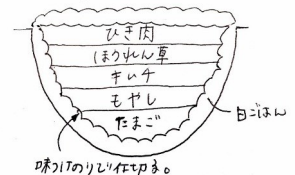 ひき肉
ほうれん草
キムチ
もやし
たまご
白ごはん
味つけのりで仕切る。